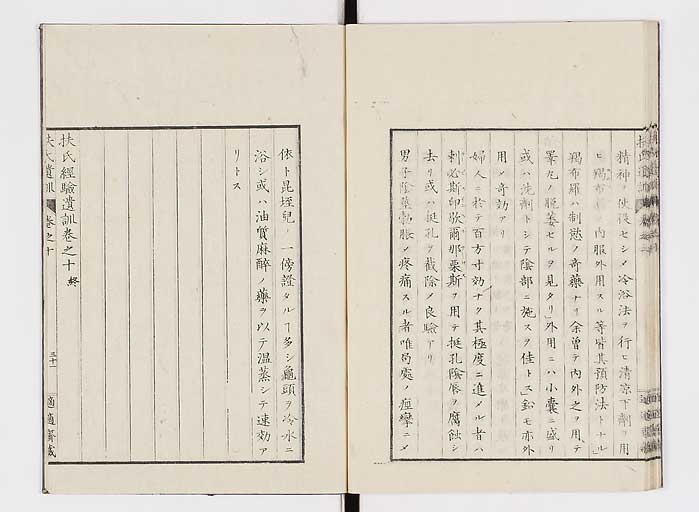 精神ヲ使役セシメ冷浴法ヲ行ヒ清凉下劑ヲ用
ヒ羯布羅ノ内服外用スル等皆其預防法トナル
羯布羅ハ制慾ノ奇藥ナリ余曽テ内外之ヲ用テ
睪丸ノ脱萎セルヲ見タリ」外用ニハ小囊ニ盛リ
或ハ洗劑トシテ陰部ニ施スヲ佳トス」鉛モ亦外
用メ奇効アリ
婦人ニ於テ百方寸効ナク其極度ニ進メル者ハ
刺必斯印歇爾那栗斯ヲ用テ挺孔陰唇ヲ腐蝕シ
去リ或ハ挺孔ヲ截除メ良驗アリ
男子陰莖勃脹メ疼痛スル者唯局處ノ痙攣ニメ
依卜昆垤兒ノ一傍證タルヿ多シ龜頭ヲ冷水ニ
浴シ或ハ油質麻醉ノ藥ヲ以テ温蒸シテ速効ア
リトス
扶氏經驗遺訓卷之十 終
扶氏遺訓 卷之十
三十一
適適齋藏